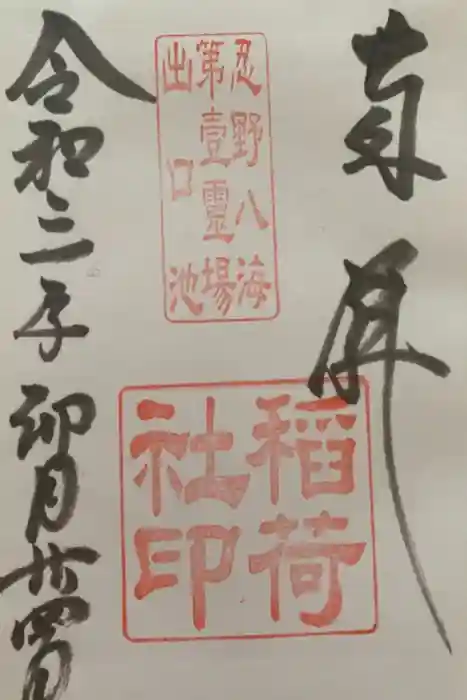 奉拝
忍野八海
第壹靈場
出口池
稲荷
社印
令和三年卯月廿四日